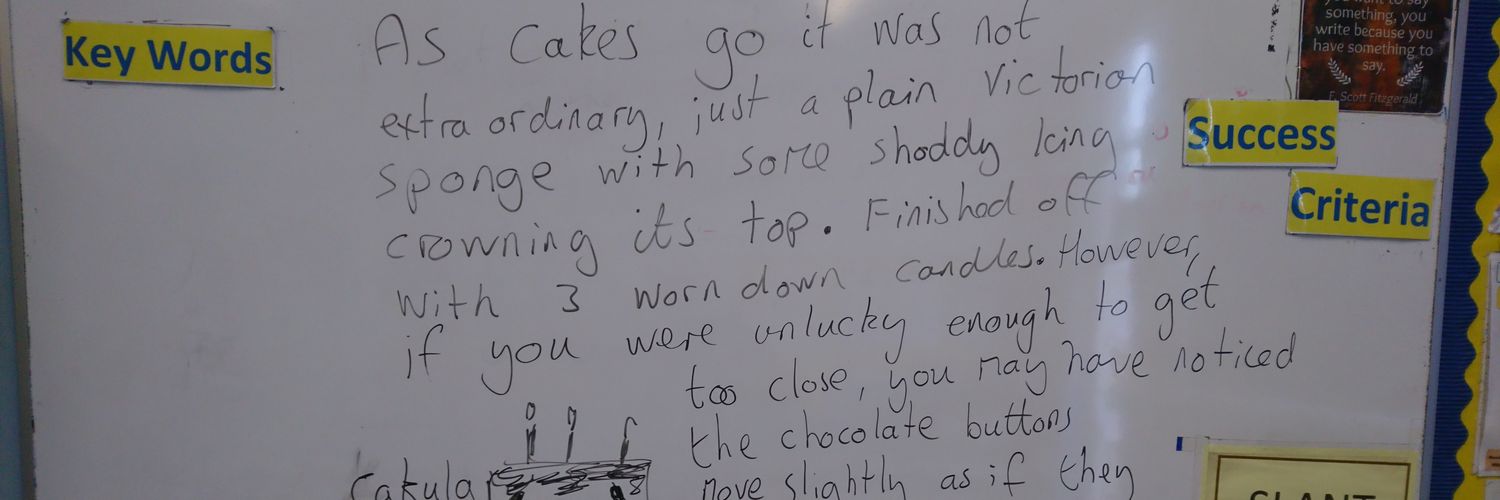 Key Words
As Cakes go it was not
extra ordinary, just a plain Victorian
sponge with some shoddy Icing
crowning its top. Finished off
with 3 worn down candles. However,
if you were unlucky enough to get
too close, you may have noticed
the chocolate buttons
move slightly as if they
Cakula
something, you
write because you
have something to
say.
F. Scott Fitzgerald
Success
Criteria
SLANT